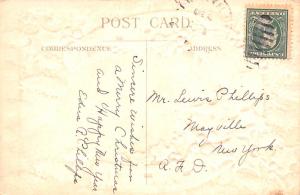 POST CARD
CORRESPONDENCE
ADDRESS
Sincere wishes for
a Merry Christmas
and Happy New Year
Edna A. Phillips
Mr. Lewis Phillips
Mayville
New York.
R.F.D.